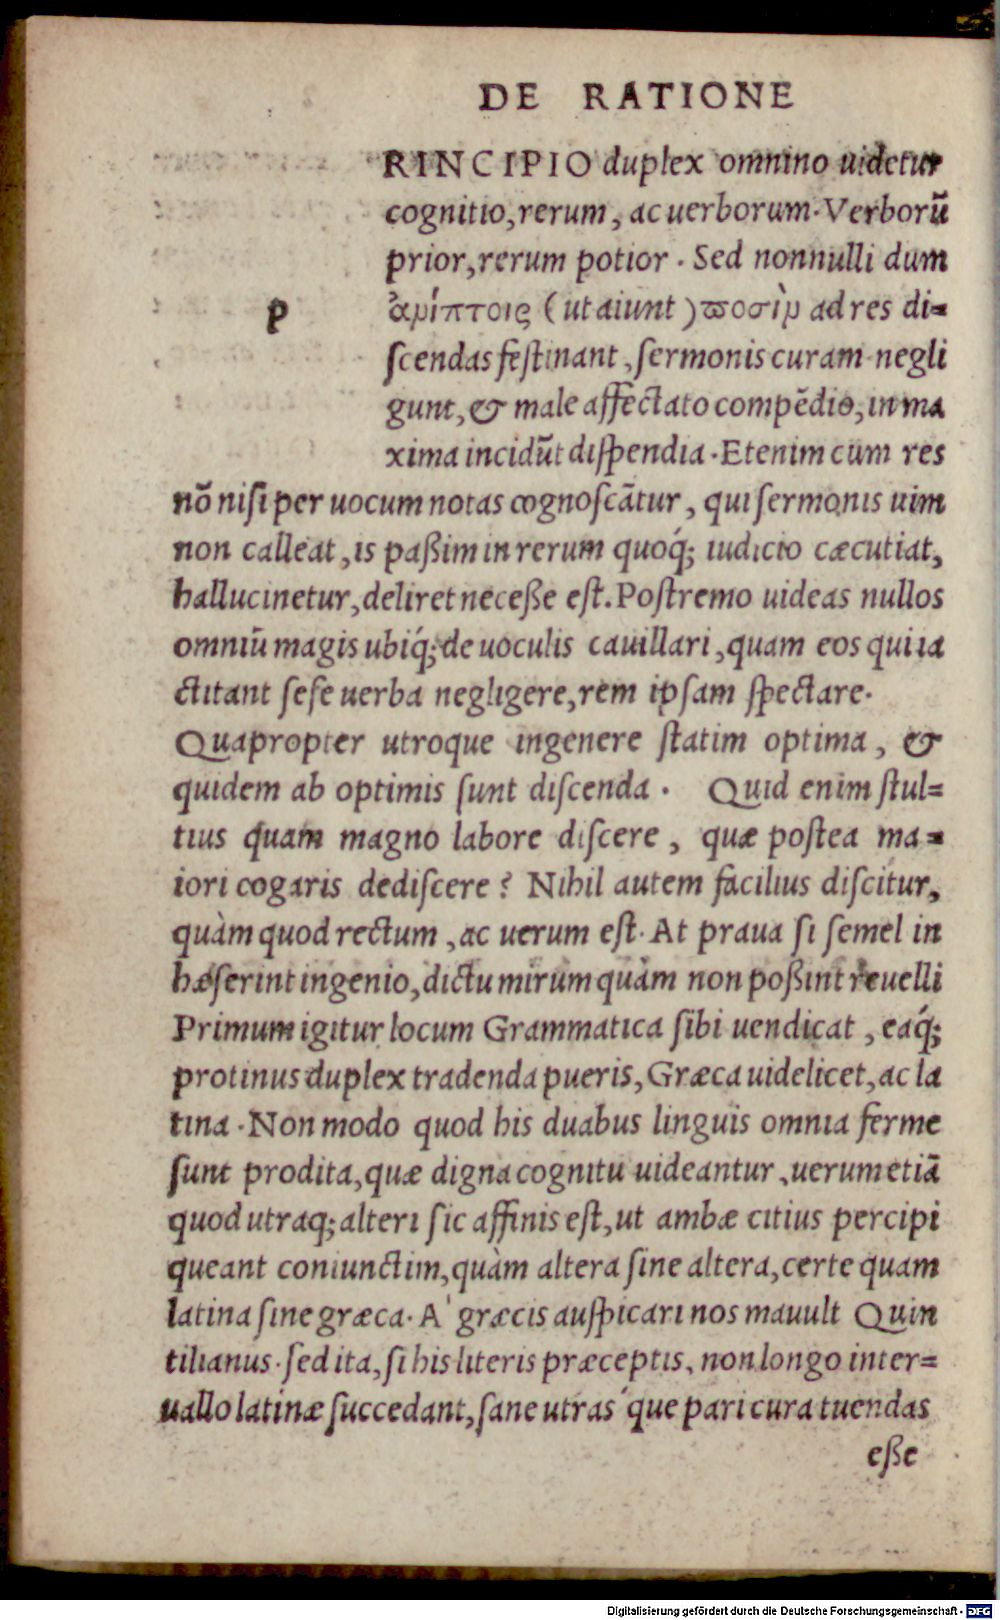 DE RATIONE
p RINCIPIO duplex omnino uidetur
cognitio, rerum, ac uerborum. Verborũ
prior, rerum potior. Sed nonnulli dum
ἀνίπτοις (ut aiunt) ϖοσὶν ad res di=
ſcendas feſtinant, ſermonis curam negli
gunt, & male affectato compẽdio, in ma
xima incidũt diſpendia. Etenim cum res
nõ niſi per uocum notas cognoſcãtur, qui ſermonis uim
non calleat, is paßim in rerum quoq́; iudicio cæcutiat,
hallucinetur, deliret neceße eſt. Poſtremo uideas nullos
omniũ magis ubiq́; de uoculis cauillari, quam eos qui ia
ctitant ſeſe uerba negligere, rem ipſam ſpectare.
Quapropter utroque in genere ſtatim optima, &
quidem ab optimis ſunt diſcenda. Quid enim ſtul=
tius quam magno labore diſcere, quæ poſtea ma=
iori cogaris dediſcere? Nihil autem facilius diſcitur,
quàm quod rectum, ac uerum eſt. At praua ſi ſemel in
hæſerint ingenio, dictu mirum quàm non poßint reuelli
Primum igitur locum Grammatica ſibi uendicat, eaq́;
protinus duplex tradenda pueris, Græca uidelicet, ac la
tina. Non modo quod his duabus linguis omnia ferme
ſunt prodita, quæ digna cognitu uideantur, uerum etiã
quod utraq; alteri ſic affinis eſt, ut ambæ citius percipi
queant coniunctim, quàm altera ſine altera, certe quam
latina ſine græca. A' græcis auſpicari nos mauult Quin
tilianus. ſed ita, ſi his literis præceptis, non longo inter=
uallo latinæ ſuccedant, ſane utras'que pari cura tuendas
eße
Digitalisierung gefördert durch die Deutsche Forschungsgemeinschaft - DFG